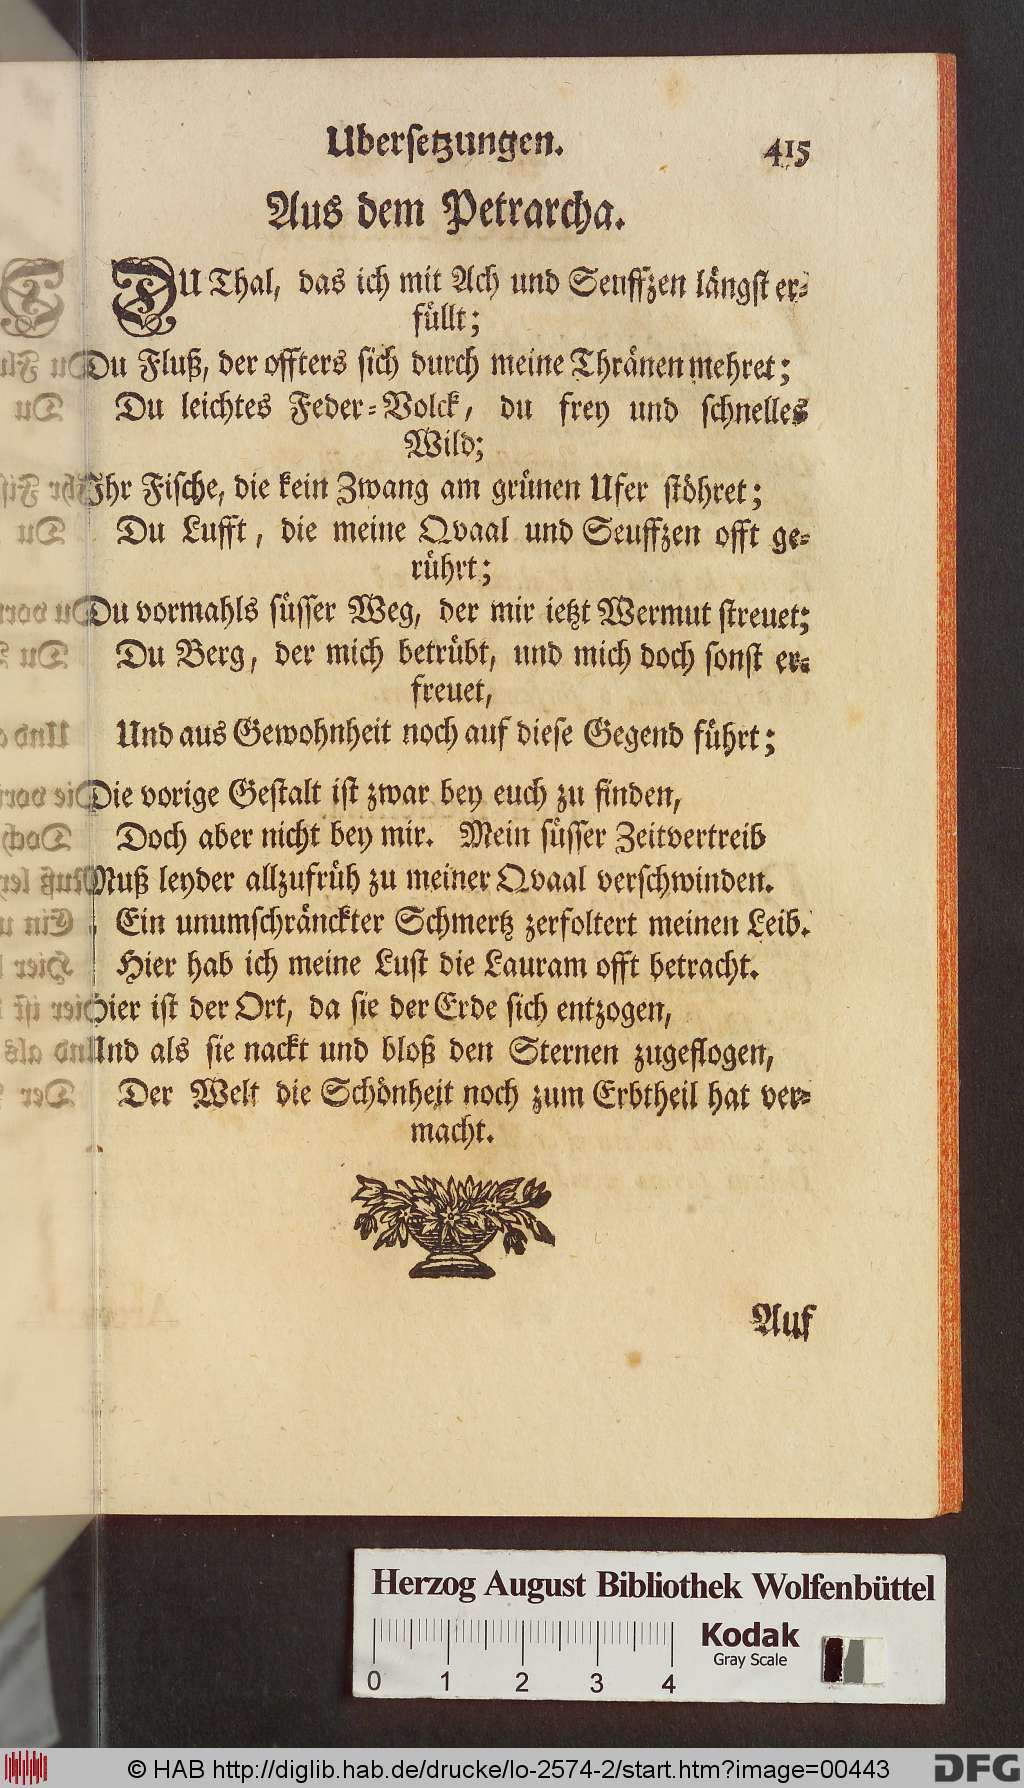 Ubersetzungen. 415
Aus dem Petrarcha.
DU Thal, das ich mit Ach und Seuffzen längst er-
füllt;
Du Fluß, der offters sich durch meine Thränen mehret;
Du leichtes Feder-Volck, du frey und schnelles
Wild;
Ihr Fische, die kein Zwang am grünen Ufer stöhret;
Du Lufft, die meine Qvaal und Seuffzen offt ge-
rührt;
Du vormahls süsser Weg, der mir ietzt Wermut streuet;
Du Berg, der mich betrübt, und mich doch sonst er-
freuet,
Und aus Gewohnheit noch auf diese Gegend führt;
Die vorige Gestalt ist zwar bey euch zu finden,
Doch aber nicht bey mir. Mein süsser Zeitvertreib
Muß leyder allzufrüh zu meiner Qvaal verschwinden.
Ein unumschränckter Schmertz zerfoltert meinen Leib.
Hier hab ich meine Lust die Lauram offt betracht.
Hier ist der Ort, da sie der Erde sich entzogen,
Und als sie nackt und bloß den Sternen zugeflogen,
Der Welt die Schönheit noch zum Erbtheil hat ver-
macht.
Auf
Herzog August Bibliothek Wolfenbüttel
Kodak
Gray Scale
0 1 2 3 4
© HAB http://diglib.hab.de/drucke/lo-2574-2/start.htm?image=00443
DFG